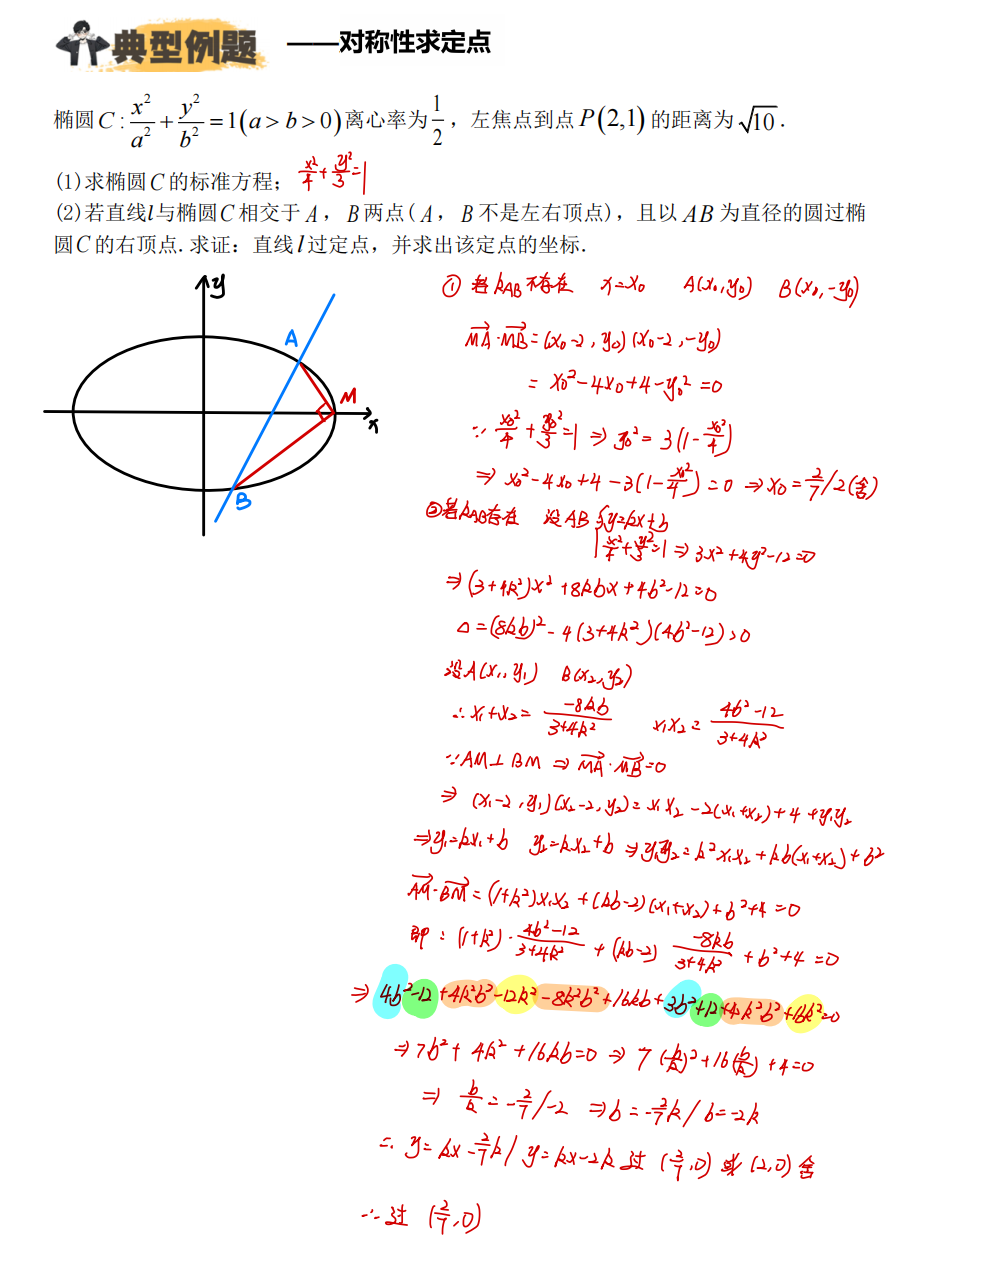 典型例题 ——对称性求定点
椭圆 C : x²/a² + y²/b² = 1(a > b > 0) 离心率为 1/2 ，左焦点到点 P(2,1) 的距离为 √10 .
(1)求椭圆 C 的标准方程； x²/4 + y²/3 = 1
(2)若直线 l 与椭圆 C 相交于 A ， B 两点( A ， B 不是左右顶点)，且以 AB 为直径的圆过椭
圆 C 的右顶点. 求证：直线 l 过定点，并求出该定点的坐标.
y
A
M
x
B
① 若k_AB不存在 x=x₀ A(x₀,y₀) B(x₀,-y₀)
MA·MB=(x₀-2,y₀)(x₀-2,-y₀)
= x₀²-4x₀+4-y₀²=0
∵ x₀²/4 + y₀²/3 = 1 ⇒ y₀² = 3(1-x₀²/4)
⇒ x₀²-4x₀+4-3(1-x₀²/4)=0 ⇒ x₀=2/7 / 2(舍)
②若k_AB存在 设AB {y=kx+b
x²/4 + y²/3 = 1 ⇒ 3x²+4y²-12=0
⇒ (3+4k²)x²+8kbx+4b²-12=0
Δ=(8kb)²-4(3+4k²)(4b²-12)>0
设A(x₁,y₁) B(x₂,y₂)
∴ x₁+x₂= -8kb/(3+4k²) x₁x₂= (4b²-12)/(3+4k²)
∵AM⊥BM ⇒ MA·MB=0
⇒ (x₁-2,y₁)(x₂-2,y₂)=x₁x₂-2(x₁+x₂)+4+y₁y₂
⇒y₁=kx₁+b y₂=kx₂+b ⇒y₁y₂=k²x₁x₂+kb(x₁+x₂)+b²
AM·BM=(1+k²)x₁x₂+(kb-2)(x₁+x₂)+b²+4=0
即：(1+k²)·(4b²-12)/(3+4k²)+(kb-2) -8kb/(3+4k²) +b²+4=0
⇒ 4b²-12+4k²b²-12k²-8k²b²+16kb+3b²+12+4k²b²+16k²=0
⇒7b²+4k²+16kb=0 ⇒ 7(b/k)²+16(b/k)+4=0
⇒ b/k=-2/7 / -2 ⇒b=-2/7k / b=-2k
∴ y=kx-2/7k / y=kx-2k 过 (2/7,0) 或 (2,0) 舍
∴过 (2/7,0)